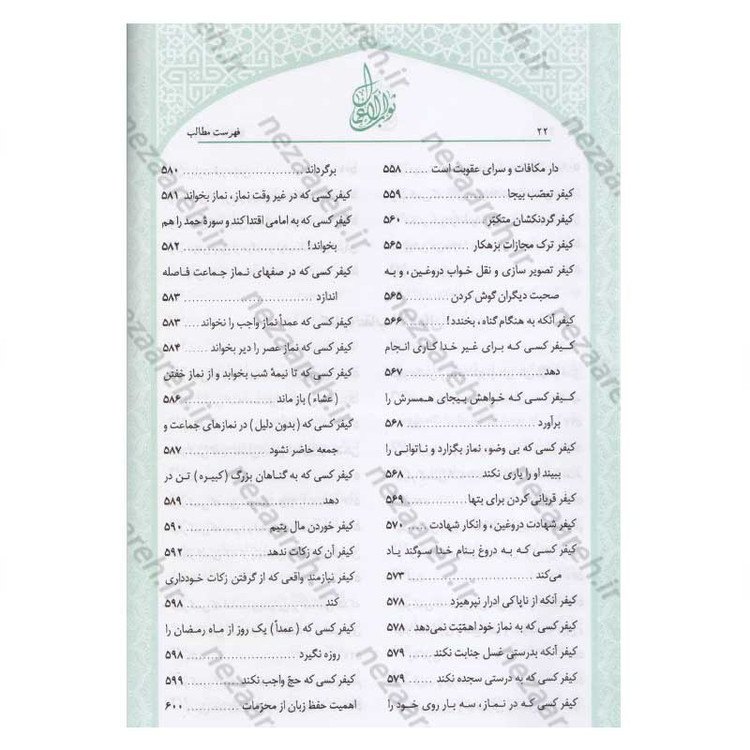 ثواب الاعمال
۲۲
فهرست مطالب
دار مکافات و سرای عقوبت است ...... ۵۵۸
کیفر تعصّب بیجا ................. ۵۵۹
کیفر گردنکشان متکبّر ............ ۵۶۰
کیفر ترک مجازات بزهکار .......... ۵۶۵
کیفر تصویر سازی و نقل خواب دروغین، و به
صحبت دیگران گوش کردن ............ ۵۶۵
کیفر آنکه به هنگام گناه، بخندد! ....... ۵۶۶
کـیفر کسی که برای غیر خدا کاری انجام
دهد ............................ ۵۶۷
کـیفر کسی کـه خواهش بیجای همسرش را
برآورد .......................... ۵۶۸
کیفر کسی که بی وضو، نماز بگزارد و ناتوانی را
ببیند او را یاری نکند ............. ۵۶۸
کیفر قربانی کردن برای بتها .......... ۵۶۹
کیفر شهادت دروغین، و انکار شهادت ..... ۵۷۰
کیفر کسـی کـه بـه دروغ بنام خدا سوگند یاد
می‌کند .......................... ۵۷۳
کیفر آنکه از ناپاکی ادرار نپرهیزد ....... ۵۷۸
کیفر کسی که به نماز خود اهمّیّت نمی‌دهد . ۵۷۸
کیفر آنکه بدرستی غسل جنابت نکند ...... ۵۷۹
کیفر کسی که به درستی سجده نکند ...... ۵۷۹
کیفر کسی که در نماز، سه بار روی خود را
برگرداند ........................ ۵۸۰
کیفر کسی که در غیر وقت نماز، نماز بخواند ۵۸۱
کیفر کسی که به امامی اقتدا کند و سورهٔ حمد را هم
بخواند! ......................... ۵۸۲
کیفر کسی که در صفهای نـماز جماعت فـاصله
اندازد .......................... ۵۸۳
کیفر کسی که عمداً نماز واجب را نخواند ... ۵۸۳
کیفر کسی که نماز عصر را دیر بخواند ..... ۵۸۴
کیفر کسی که تا نیمهٔ شب بخوابد و از نماز خفتن
(عشاء) باز ماند ................. ۵۸۶
کیفر کسی که (بدون دلیل) در نمازهای جماعت و
جمعه حاضر نشود ................. ۵۸۷
کیفر کسی که به گناهان بزرگ (کبیره) تن در
دهد ............................ ۵۸۹
کیفر خوردن مال یتیم ............. ۵۹۰
کیفر آن که زکات ندهد ............ ۵۹۲
کیفر نیازمند واقعی که از گرفتن زکات خودداری
کند ............................ ۵۹۸
کیفر کسی که (عمداً) یک روز از ماه رمضان را
روزه نگیرد ...................... ۵۹۸
کیفر کسی که حجّ واجب نکند ........ ۵۹۹
اهمیت حفظ زبان از محرّمات ........ ۶۰۰
nezaareh.ir